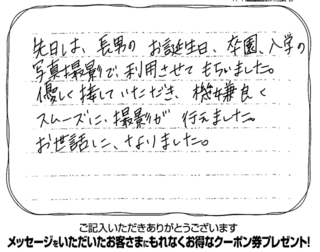 先日は、長男の お誕生日、卒園、入学の
写真撮影で、利用させて もらいました。
優しく 接していただき、機嫌良く
スムーズに、撮影が 行えました。
お世話に、なりました。
ご記入いただきありがとうございます
メッセージをいただいたお客さまにもれなくお得なクーポン券プレゼント!